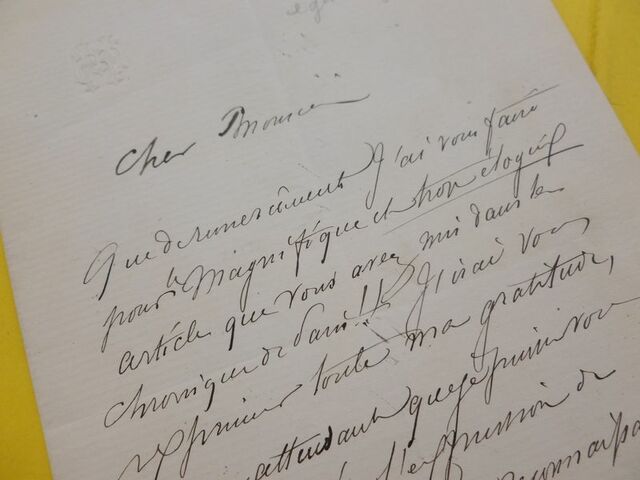 Cher Monsieur
Que de remerciements j'ai à vous faire
pour le magnifique et trop élogieux
article que vous avez mis dans la
chronique de Paris!! J'irai vous
exprimer toute ma gratitude,
attendant que je puisse vous
l'expression de